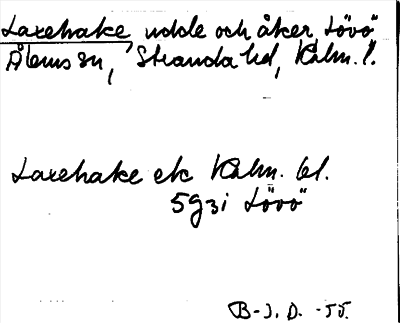 Laxehake udde och åker, Lövö
Ålems sn, Stranda hd, Kalm. l.
Laxehake ek Kalm. bl.
5g3i Lövö
B-J. D. -55.